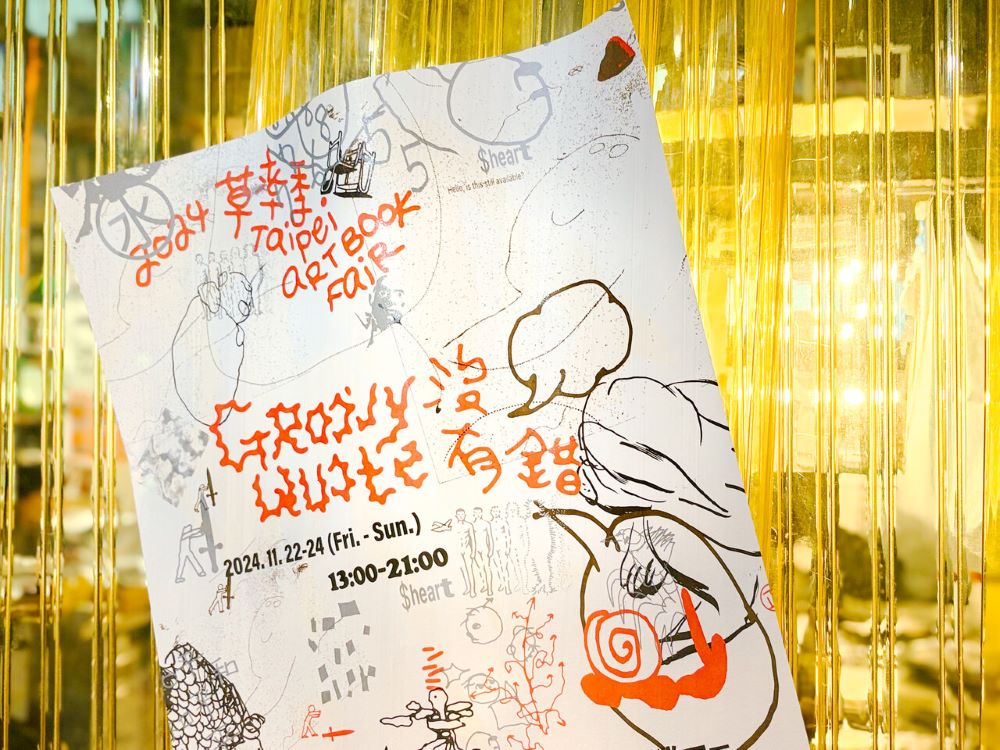 $heart
Hello, is this still available?
水
2024 草率季
Taipei
ART BOOK
FAIR
GROOVY 沒
QUOTE 有錯
2024. 11. 22-24 (Fri. - Sun.)
13:00-21:00
$heart